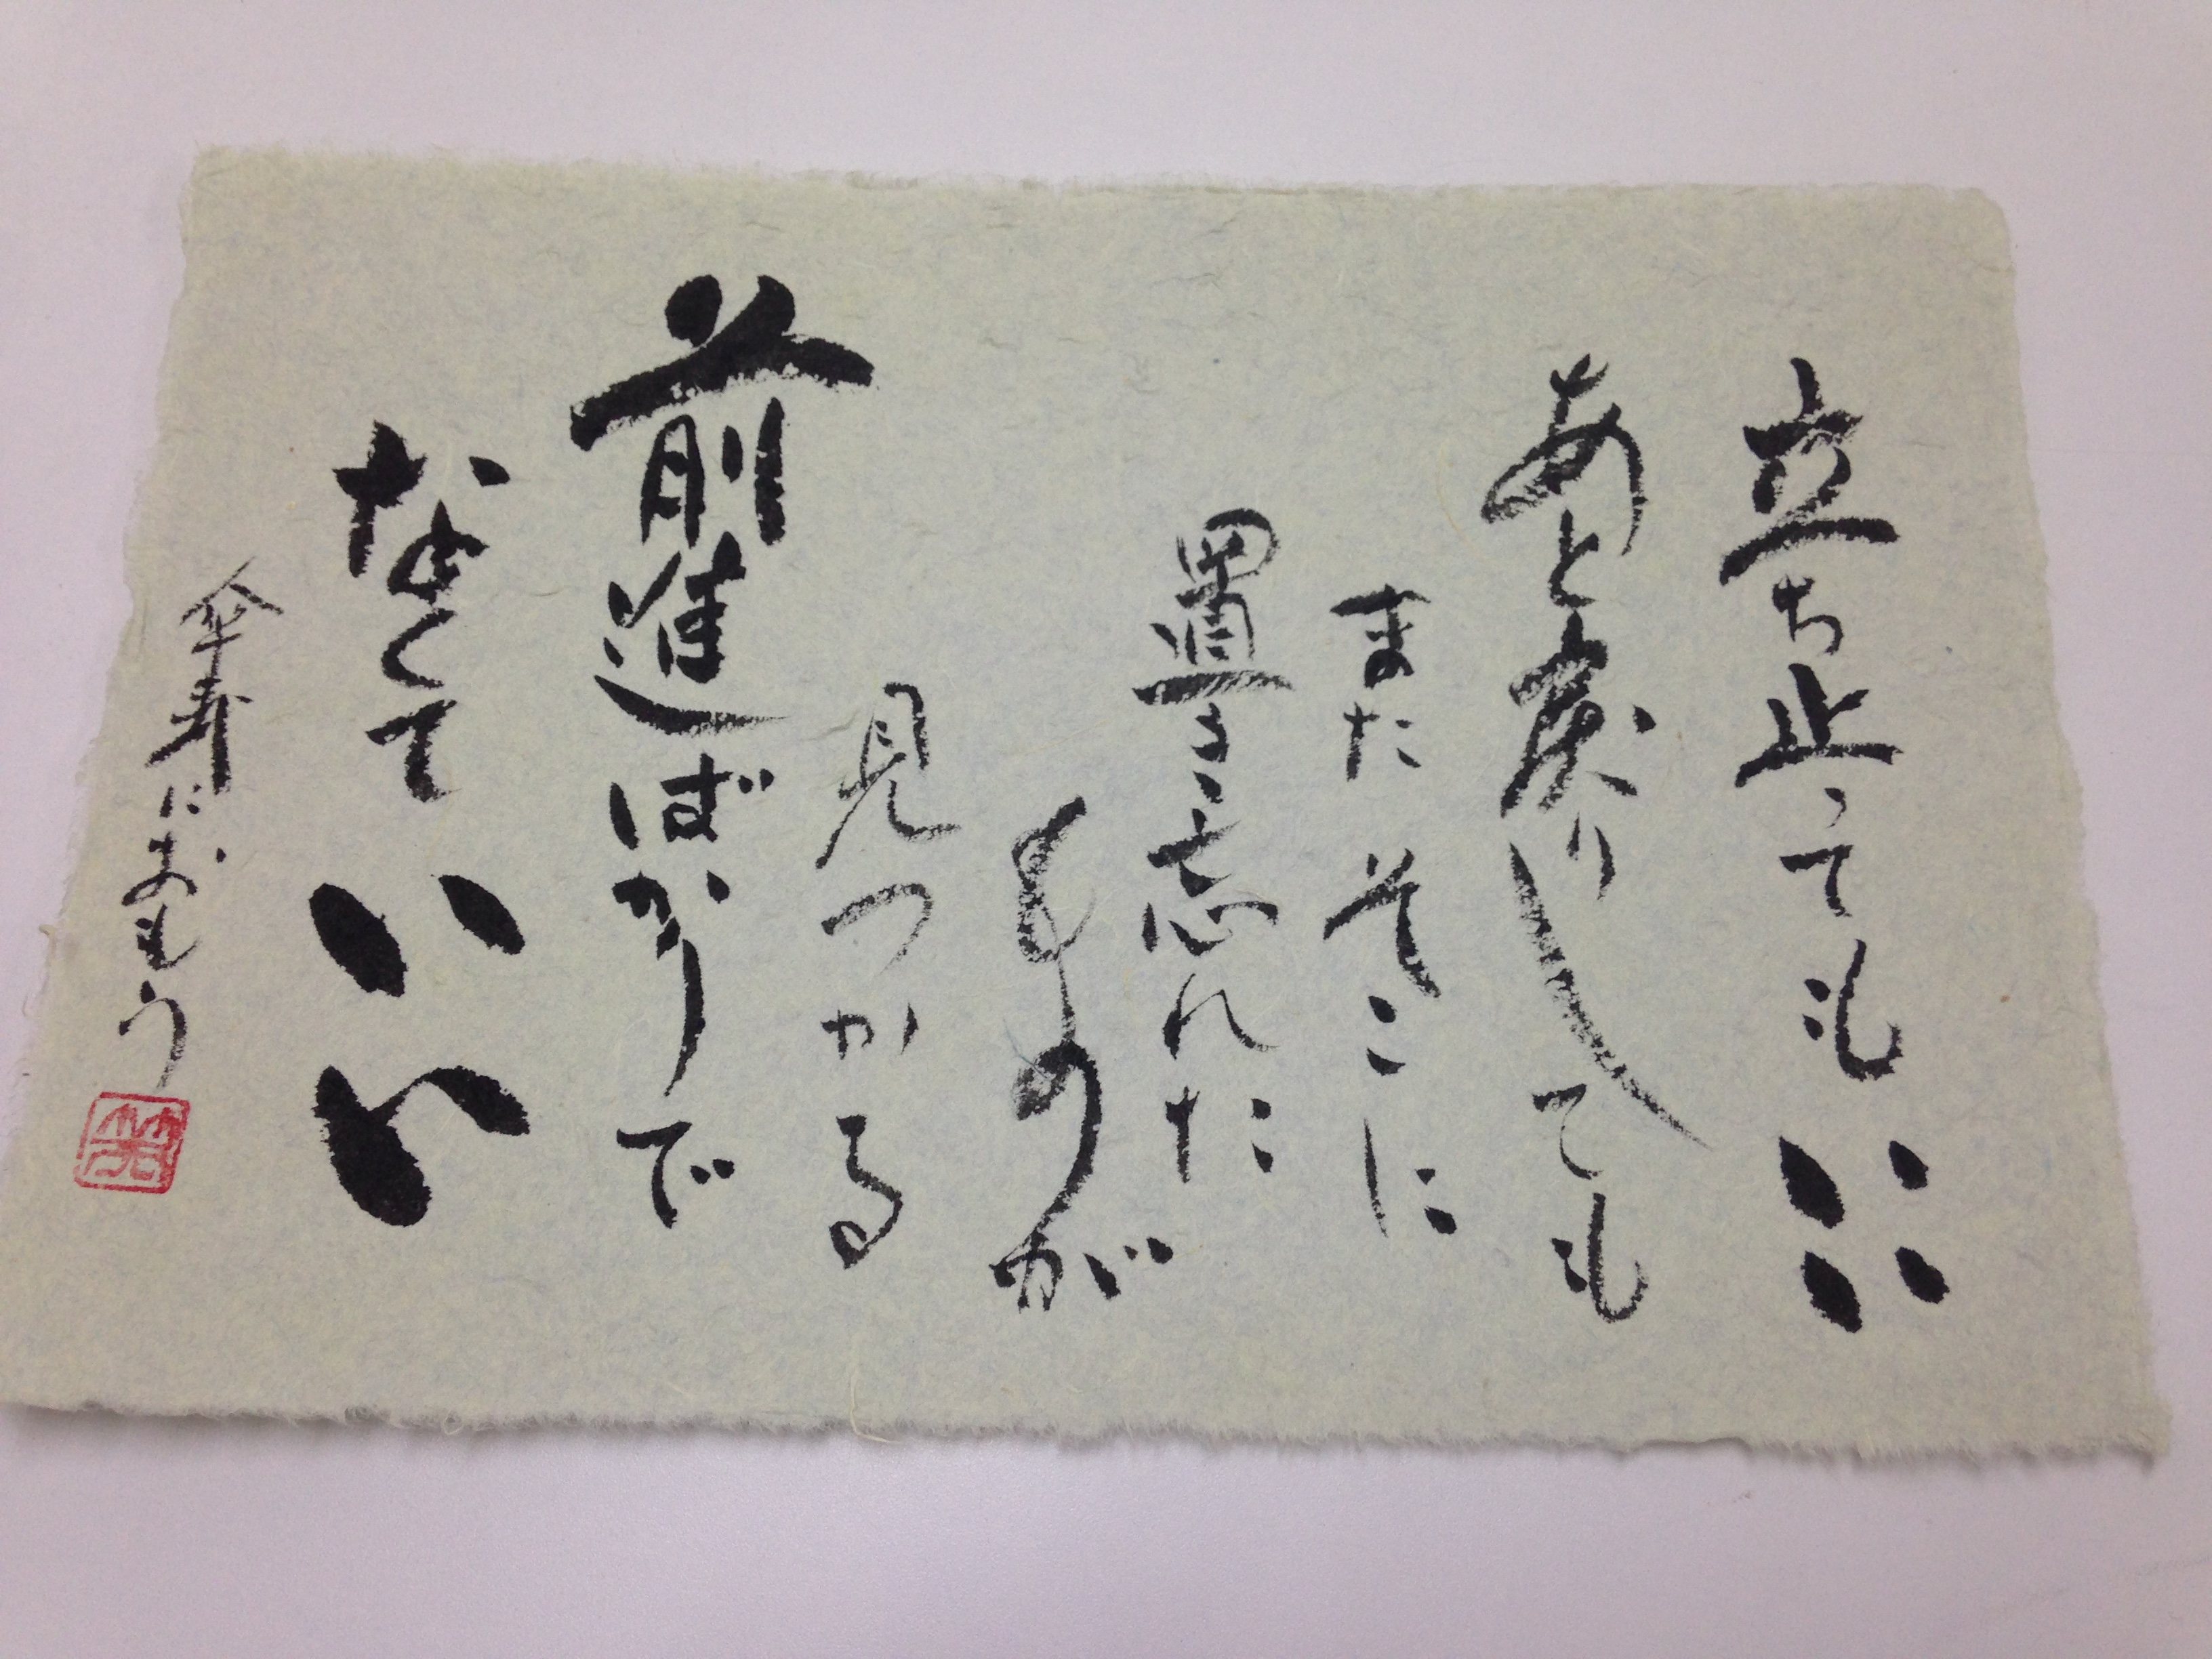 立ち止ってもいい
あと戻りしても
またそこに
置き忘れた
ものが
見つかる
前進ばかりで
なくていい
傘寿におもう
笑